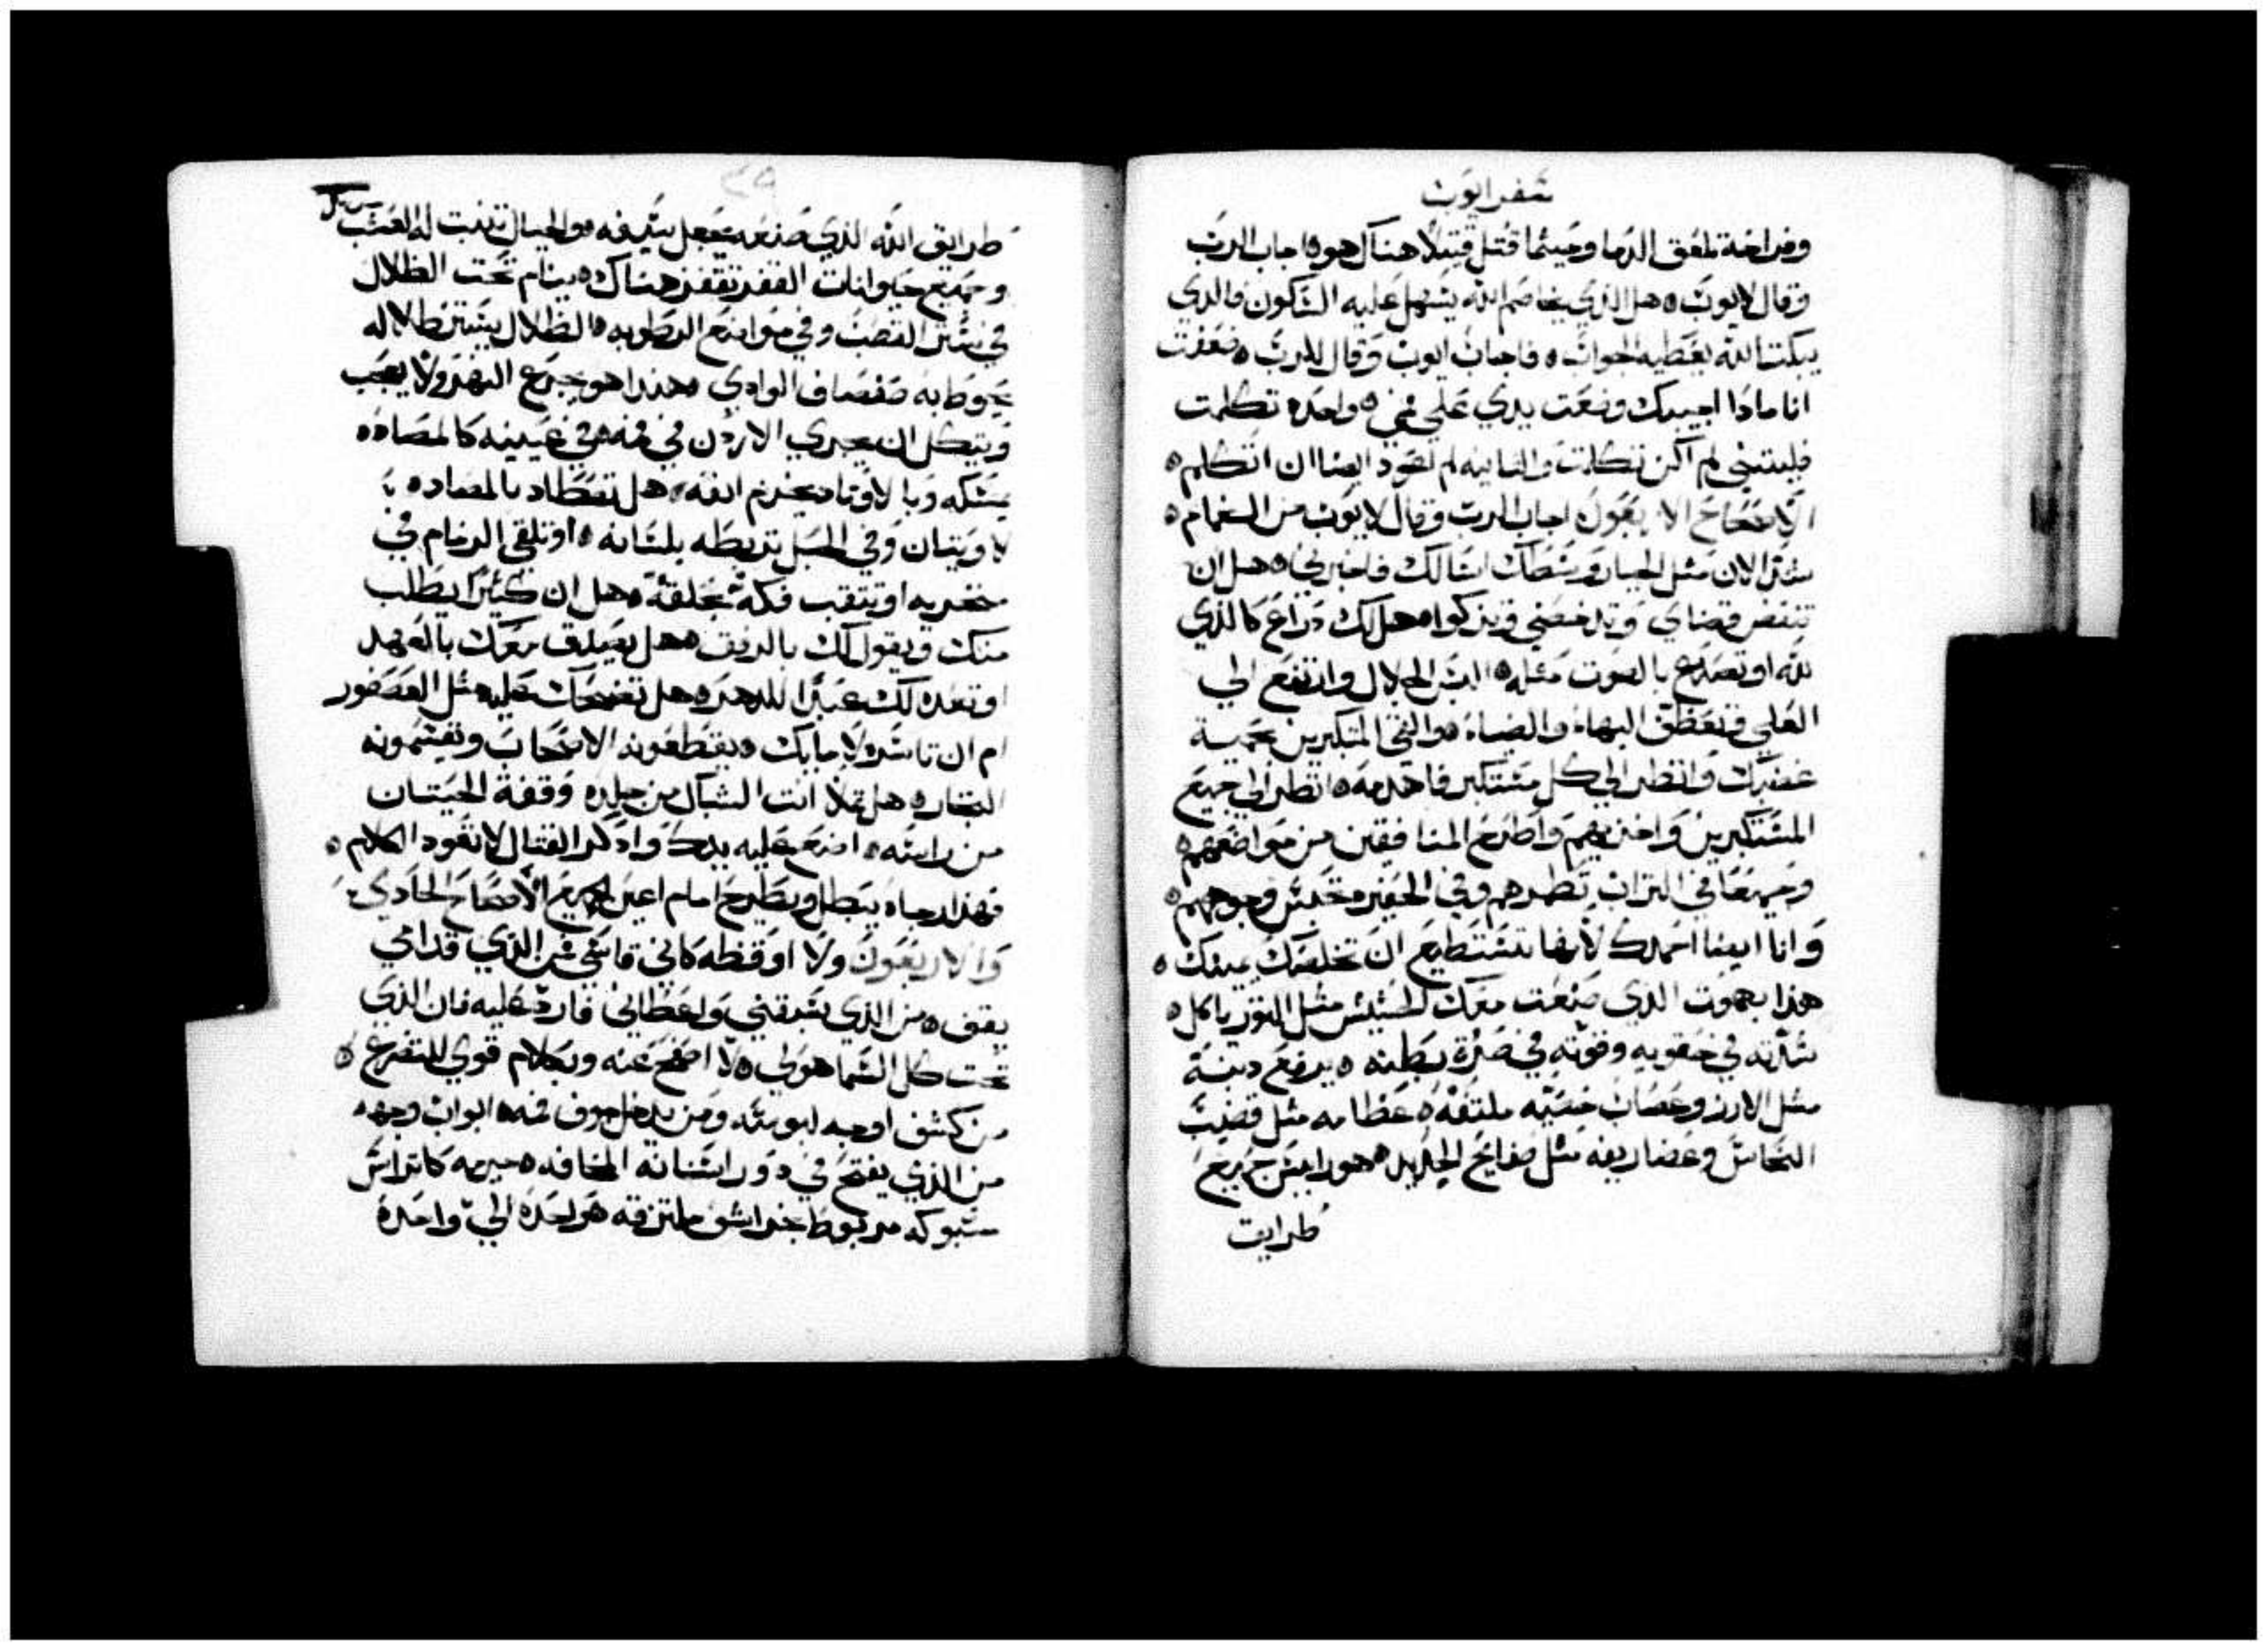 سفر ايوب
وفراخة تلعق الدما وحيثما قتل قتيلا هناك هو اجاب الرب
وقال لايوب هل الذي يخاصم الله يسهل عليه السكون فالذي
يبكت الله يعطيه الجواب فاجاب ايوب وقال للرب ضعفت
انا ماذا اجيبك وضعت يدي علي فمي واحده تكلمت
فليتني لم اكن تكلمت والثانيه لم اعود ايضا ان اتكلم
الاصحاح الاربعون اجاب الرب وقال لايوب من الغمام
ستر الان مثل الجبار وسطك اسالك فاخبرني هل ان
تنقض قضاي وتدحضني وتزكوا هل لك دراع كالذي
لله او تصدع بالصوت مثله البس الجلال وارتفع الي
العلي وتعظم البهاء والضياء والقي المتكبرين بحمية
غضبك وانظر الي كل مستكبر فاهدمه انظر الي جميع
المستكبرين واخزيهم واطرح المنافقين من مواضعهم
وجميعا في التراب تطمرهم وفي الحفر وتحبس وجوههم
وانا ايضا احمدك لانها تستطيع ان تخلصك يمينك
هذا بهموت الذي صنعت معك الحشيش مثل الثور ياكل
شدته في حقويه وقوته في صرة بطنه يرفع دينة
مثل الارز وعصاب خصيه ملتفه عظامه مثل قضيب
النحاس وغضاريفه مثل صفايح الحديد هو راس جميع
طرايق
٢٩
طرايق الله الذي صنعه يجعل سيفه والجبال تنبت له العشب
وجميع حيوانات القفر تقفز هناك ينام تحت الظلال
في ستر القصب وفي مواضع الرطوبه الظلال يستر ظلاله
يحوط به صفصاف الوادي هذا هو يجرع النهر ولا يعجب
ويتكل ان يجري الاردن في فمه في عينيه كالمصاده
يمسكه وبالاوتاد يخزم انفه هل تصطاد بالمصاده
لاويتان وفي الحبل تربطه بلسانه او تلقي الزمام في
منخريه او يتقب فكه بحلقة هل ان كثيرا يطلب
منك ويقول لك بالرفق هل يصدق معك بالعهد
او تعده لك عبدا للدهر هل تضحك عليه مثل العصفور
ام ان تاسره لامايك يقطعونه الاصحاب وتقسمونه
التجار هل تملا انت الشباك من جلده وقفة الحيتان
من راسه اضع عليه يدك واذكر القتال لا تعود الكلام
فهذا رجاه يبطل ويطرح امام اعين الجميع الاصحاح الحادي
والاربعون ولا اوقظه كاني قاسي من الذي قدامي
يقف من الذي يسبقني واعطاني فارد عليه فان الذي
تحت كل السما هو لي لا اصفح عنه وبكلام قوي للتضرع
من كشف اوجه لبوسه ومن يدخل جوف فمه ابواب وجهه
من الذي يفتح في دور اسنانه المخافه جرمه كاتراس
مسبوكه مربوط بحراشف ملتزقه هو احده الي واحده